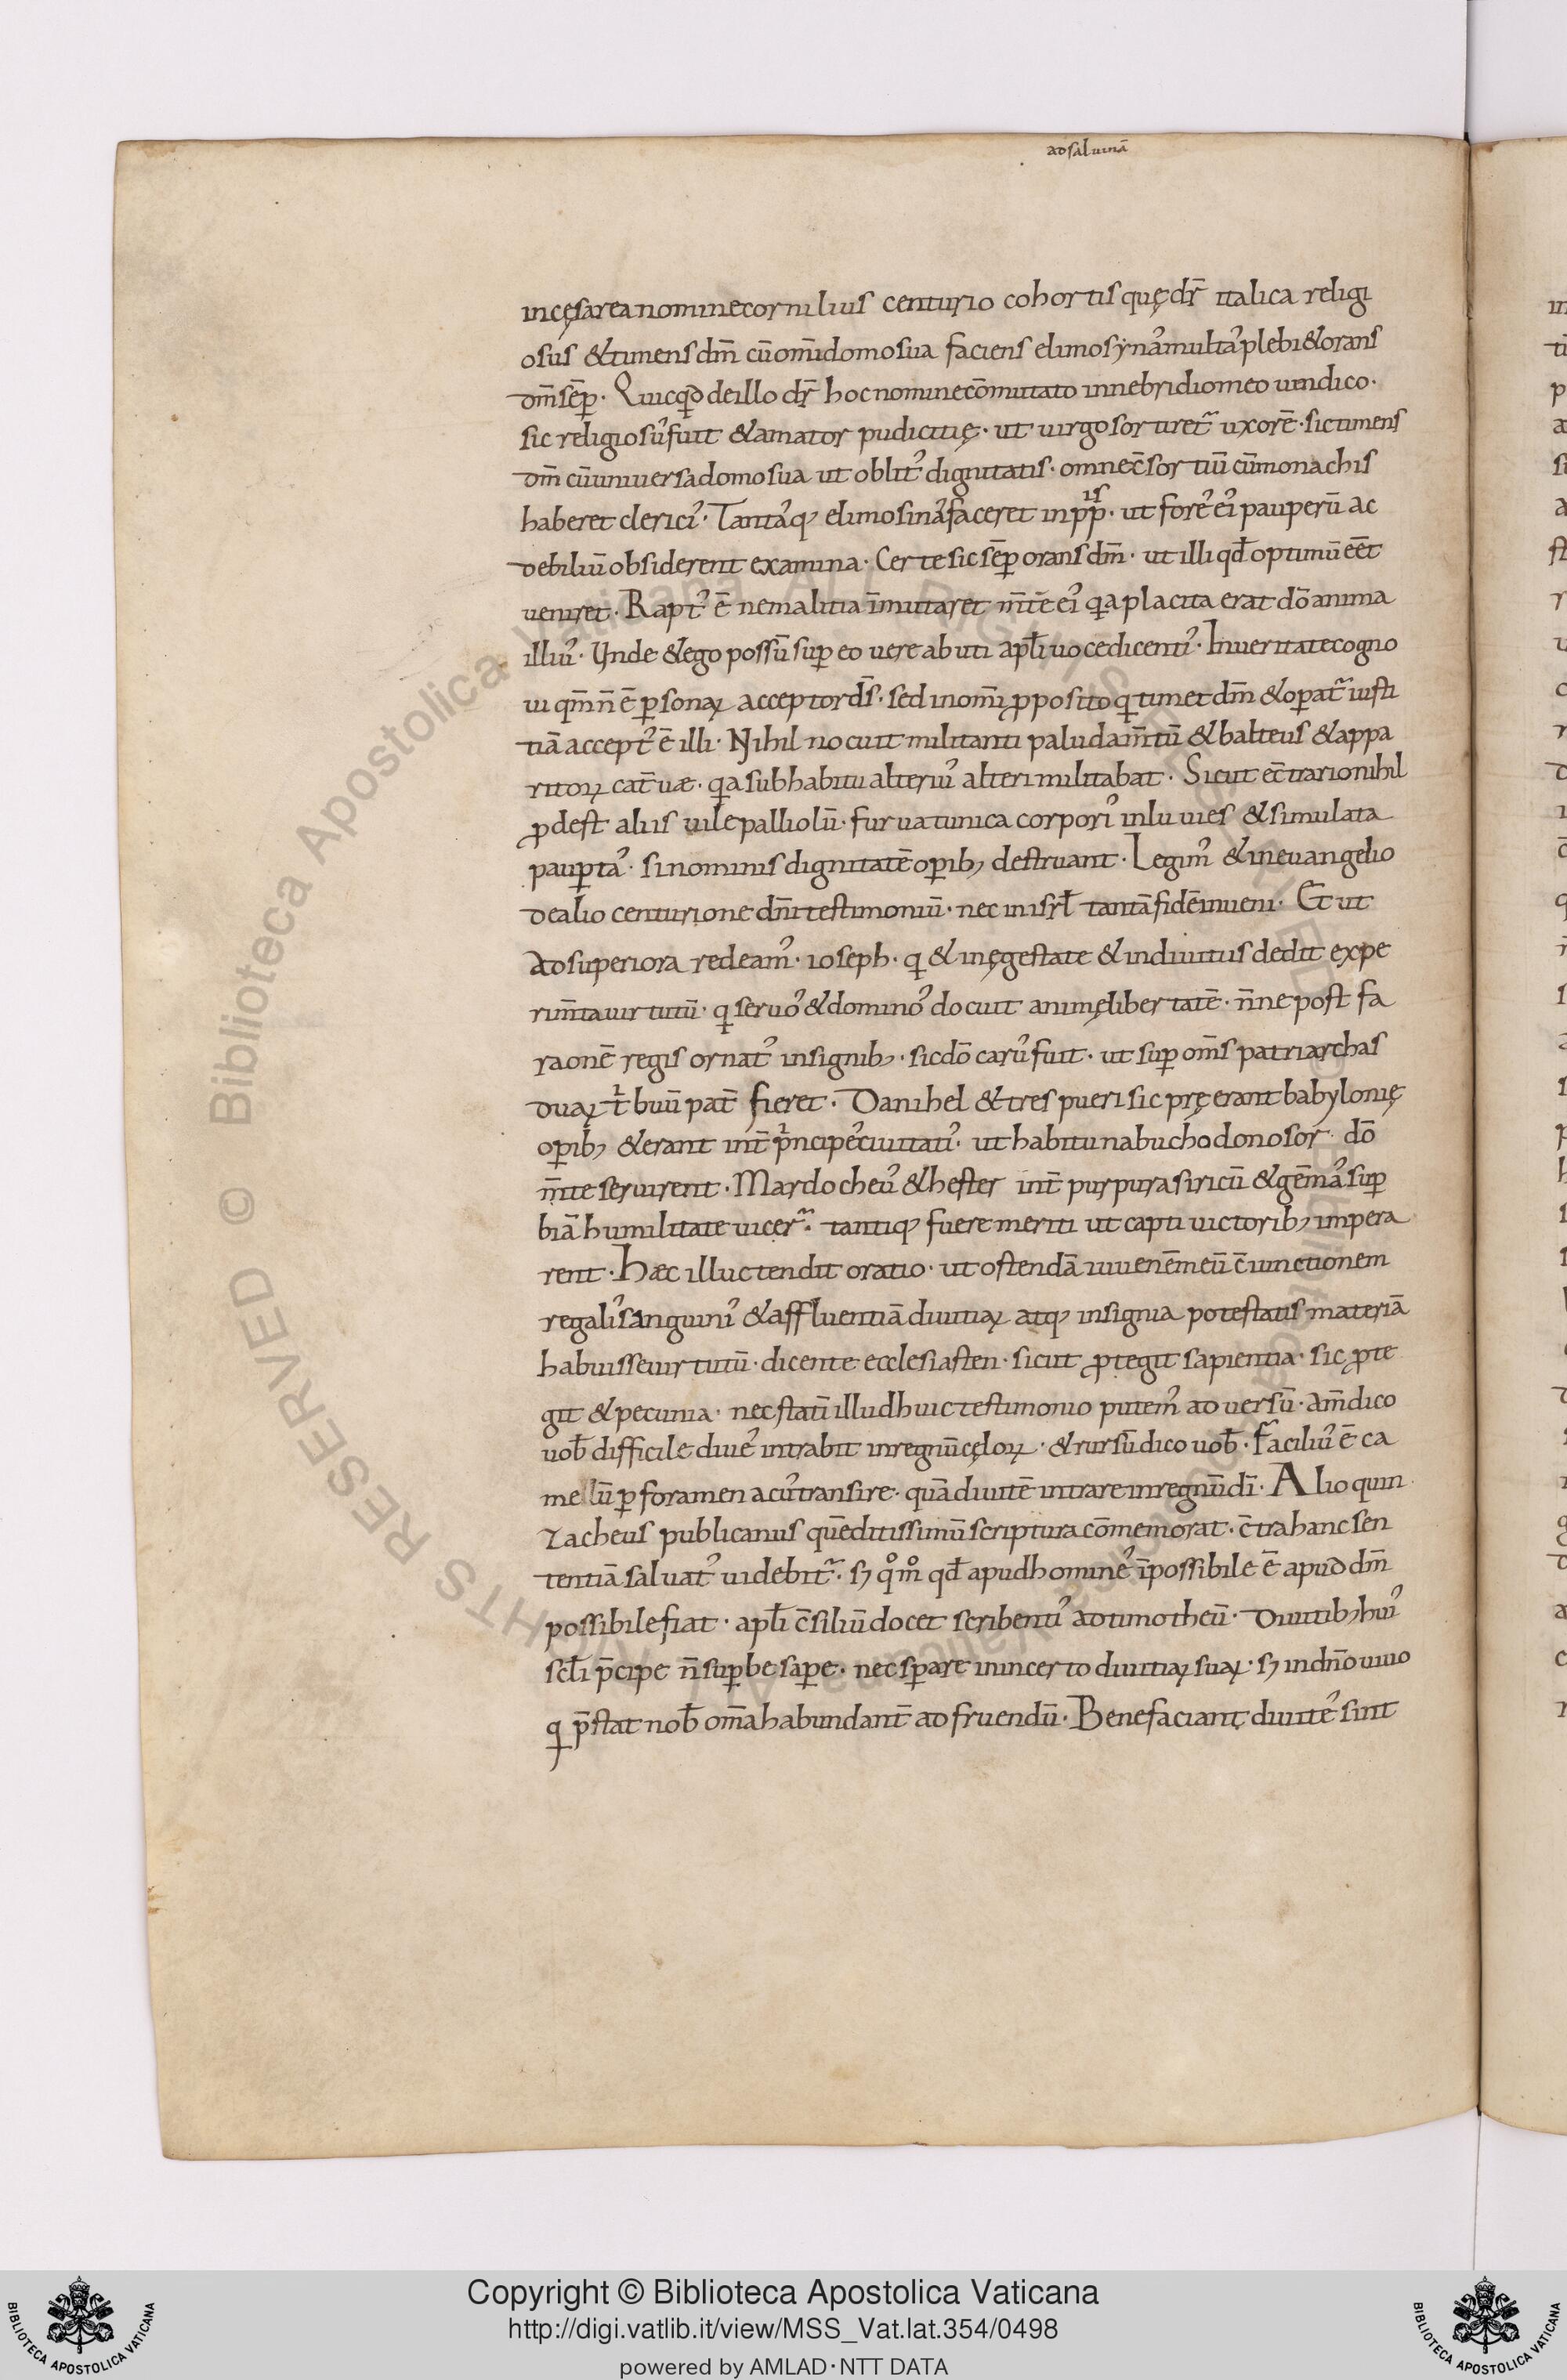 ad saluinā
in cęsarea nomine cornilius centurio cohortis quę dr̄ italica religi
osus & timens dm̄ cū om̄i domo sua faciens elimosẏna᾽ multa᾽ plebi & orans
dm̄ sēꝑ· Quicqđ de illo dr̄ hoc nomine cōmutato in nebridio meo uendico·
sic religiosu᾽ fuit & amator pudicitię· ut uirgo sortiret᷑ uxorē· sic timens
dm̄ cū uniuersa domo sua ut oblit᾽ dignitatis· omne c̄sortiū cū monachis
haberet clerici᾽· Tanta᾽q; elimosina᾽ faceret in pp̄is· ut fore᾽ ei᾽ pauperū ac
debiliū obsiderent examina· Certe sic sēꝑ orans dm̄· ut illi qđ optimū eēt
ueniret· Rapt᾽ ē ne malitia īmutaret m̄tē ei᾽ qa placita erat dō anima
illiu᾽· Vnde & ego possū suꝑ eo uere abuti apłi uoce dicenti᾽· In ueritate cogno
ui qm̄ n̄ ē ꝑsonaꝝ acceptor dś· sed in om̄i ꝓposito q timet dm̄ & oꝑat᷑ iusti
tiā accept᾽ ē illi· Nihil nocuit militanti paludam̄tū & balteus & appa
ritoꝝ cat̄uæ· qa sub habitu alteriu᾽ alteri militabat· Sicut ec̄trario nihil
ꝓdest aliis uile palliolū· furua tunica corpori᾽ inluuies & simulata
pauꝑta᾽· si nominis dignitatē oꝑib; destruant· Legim᾽ & in euangelio
de alio centurione dn̄i testimoniū· nec in isrł tantā fidē inueni· Et ut
ad superiora redeam᾽· ioseph· q & in ęgestate & in diuitiis dedit expe
rim̄ta uirtutū· q seruo᾽ & domino᾽ docuit animę libertatē· n̄ne post fa
raonē regis ornat᾽ insignib;· sic dō caru᾽ fuit· ut suꝑ om̄s patriarchas
duaꝝ tͥbuū pat̄ fieret· Danihel & tres pueri sic pręerant babylonię
oꝑib; & erant int̄ pͥncipe᾽ ciuitati᾽· ut habitu nabuchodonosor dō
m̄te seruirent· Mardocheu᾽ & hester int̄ purpura siricū & gēma᾽ suꝑ
biā humilitate uicer᷑· tantiq; fuere meriti ut capti uictorib; impera
rent· Hæc illuc tendit oratio· ut ostendā iuuenē meū c̄iunctionem
regali᾽ sanguini᾽ & affluentiā diuitiaꝝ atq; insignia potestatis materiā
habuisse uirtutū· dicente ecclesiasten· sicut ꝓtegit sapientia· sic ꝓte
git & pecunia· nec statī illud huic testimonio putem᾽ aduersū· am̄ dico
uob̄ difficile diue᾽ intrabit in regnū cęloꝝ· & rursū dico uob̄· Faciliu᾽ ē ca
mellū ꝑ foramen acu᾽ transire· quā diuitē intrare in regnū dī· Alioquin
Zacheus publicanus quē ditissimū scriptura cōmemorat· c̄tra hanc sen
tentiā saluat᾽ uidebit᷑· sꝫ qͦmͦ qđ apud homine᾽ īpossibile ē apud dm̄
possibile fiat· apłi c̄siliū docet scribenti᾽ ad timotheū· Diuitib; hui᾽
scłi p̄cipe n̄ suꝑbe saꝑe· nec sꝑare in incerto diuitiaꝝ suaꝝ· sꝫ in dn̄o uiuo
q p̄stat nob̄ om̄a habundant̄ ad fruendū· Benefaciant diuite᾽ sint
Copyright © Biblioteca Apostolica Vaticana
http://digi.vatlib.it/view/MSS_Vat.lat.354/0498
powered by AMLAD·NTT DATA
BIBLIOTECA APOSTOLICA VATICANA
BIBLIOTECA APOSTOLICA VATICANA